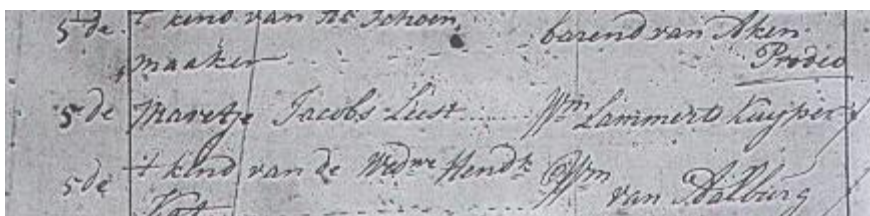 5 de t kind van As Schoen, barend van Aken
maaker Prodeo
5 de Maretje Jacobs Liest Wm Lammert Kuyper
5 de t kind van de Wedwe Hendk Wm van Dalburg
Kot